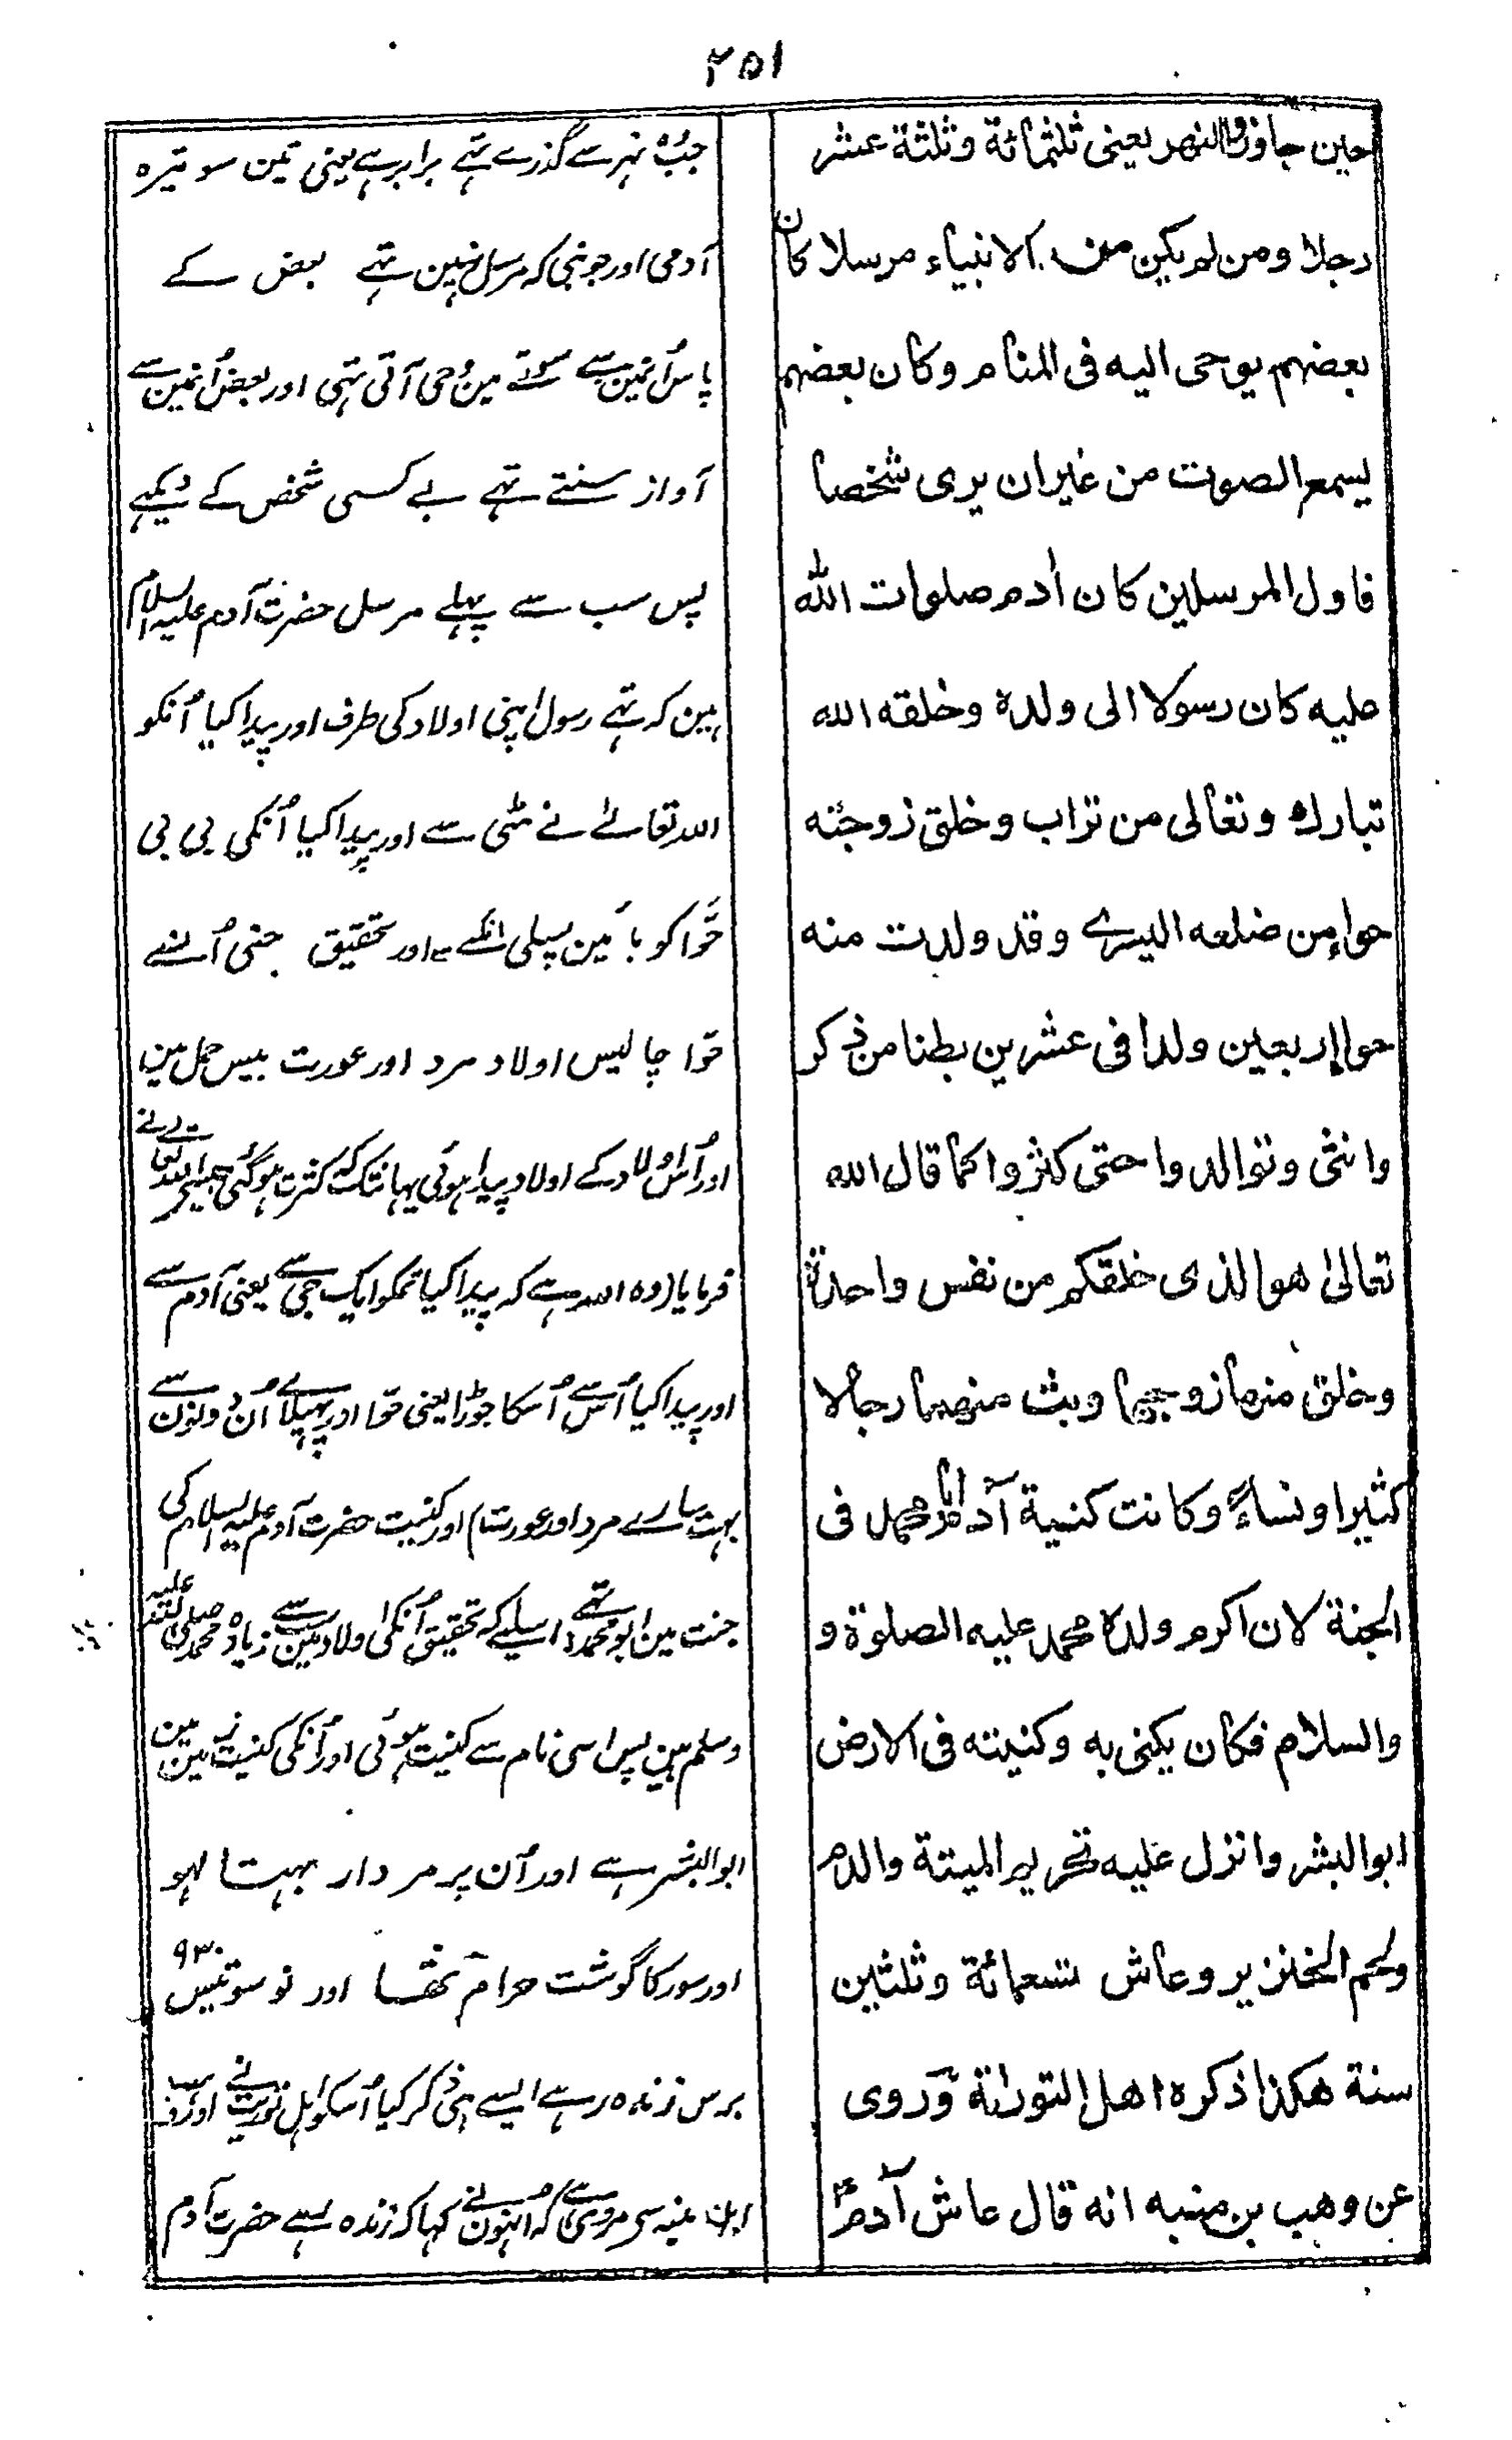 ٢٥١
حين جاوزوا النهر يعنى ثلثمائة وثلثة عشر
رجلا ومن لم يكن من الانبياء مرسلا كان
بعضهم يوحى اليه فى المنام وكان بعضهم
يسمع الصوت من غير ان يرى شخصا
فاول المرسلين كان أدم صلوات الله
عليه كان رسولا الى ولده وخلقه الله
تبارك وتعالى من تراب وخلق زوجته
حواء من ضلعه اليسرے وقد ولدت منه
حواء اربعين ولدا فى عشرين بطنا من ذكر
وانثى وتوالدوا حتى كثروا كما قال الله
تعالىٰ هو الذى خلقكم من نفس واحدة
وخلق منها زوجها وبث منهما رجالا
كثيرا ونساءً وكانت كنية آدم ابا محمد فى
الجنة لان اكرم ولده محمد عليه الصلوة و
والسلام فكان يكنى به وكنيته فى الارض
ابو البشر وانزل عليه تحريم الميتة والدم
ولحم الخنزير وعاش تسعمائة وثلثين
سنة هكذا ذكره اهل التورٰىة وروى
عن وهب بن منبه انه قال عاش آدمؑ
جب نہر سے گذرے تہے برابر ہے یعنی تین سو تیرہ
آدمی اور جو نبی کہ مرسل نہین تہے بعض کے
پاس اُنمین سے سوتے مین وحی آتی تہی اور بعض اُنمین سے
آواز سنتے تہے بے کسی شخص کے دیکہے
پس سب سے پہلے مرسل حضرت آدم علیہ السلام
ہین کہ تہے رسول اپنی اولاد کی طرف اور پیدا کیا اُنکو
اللہ تعالےٰ نے مٹی سے اور پیدا کیا اُنکی بی بی
حَوّا کو بائین پسلی انکے سے اور تحقیق جنی اُنسے
حوّا چالیس اولاد مرد اور عورت بیس حمل مین
اور اُس اولاد کے اولاد پیدا ہوئی یہانتک کہ کثرت ہوگئی جیسا اللہ تعالیٰ نے
فرمایا (وہ اللہ ہے کہ پیدا کیا تمکو ایک جی سے یعنی آدم سے
اور پیدا کیا اُس سے اُسکا جوڑا یعنی حوّا اور پہیلائے اُن دونون سے
بہت سارے مرد اور عورت) اور کنیت حضرت آدم علیہ السلام کی
جنت مین ابو محمد تہے اسلیے کہ تحقیق اُنکی اولاد مین سے زیادہ محمد صلی اللہ علیہ
وسلم ہین پس اسی نام سے کنیت ہوئی اور اُنکی کنیت زمین مین
ابوالبشر ہے اور اُن پر مردار بہتا لہو
اور سور کا گوشت حرام تھا اور نو سو تیس ۹۳۰
برس زندہ رہے ایسے ہی ذکر کیا اُسکو اہل توریت نے اور وہب
ابن منبہ سی مروی ہے کہ اُنہون نے کہا کہ زندہ رہے حضرت آدم